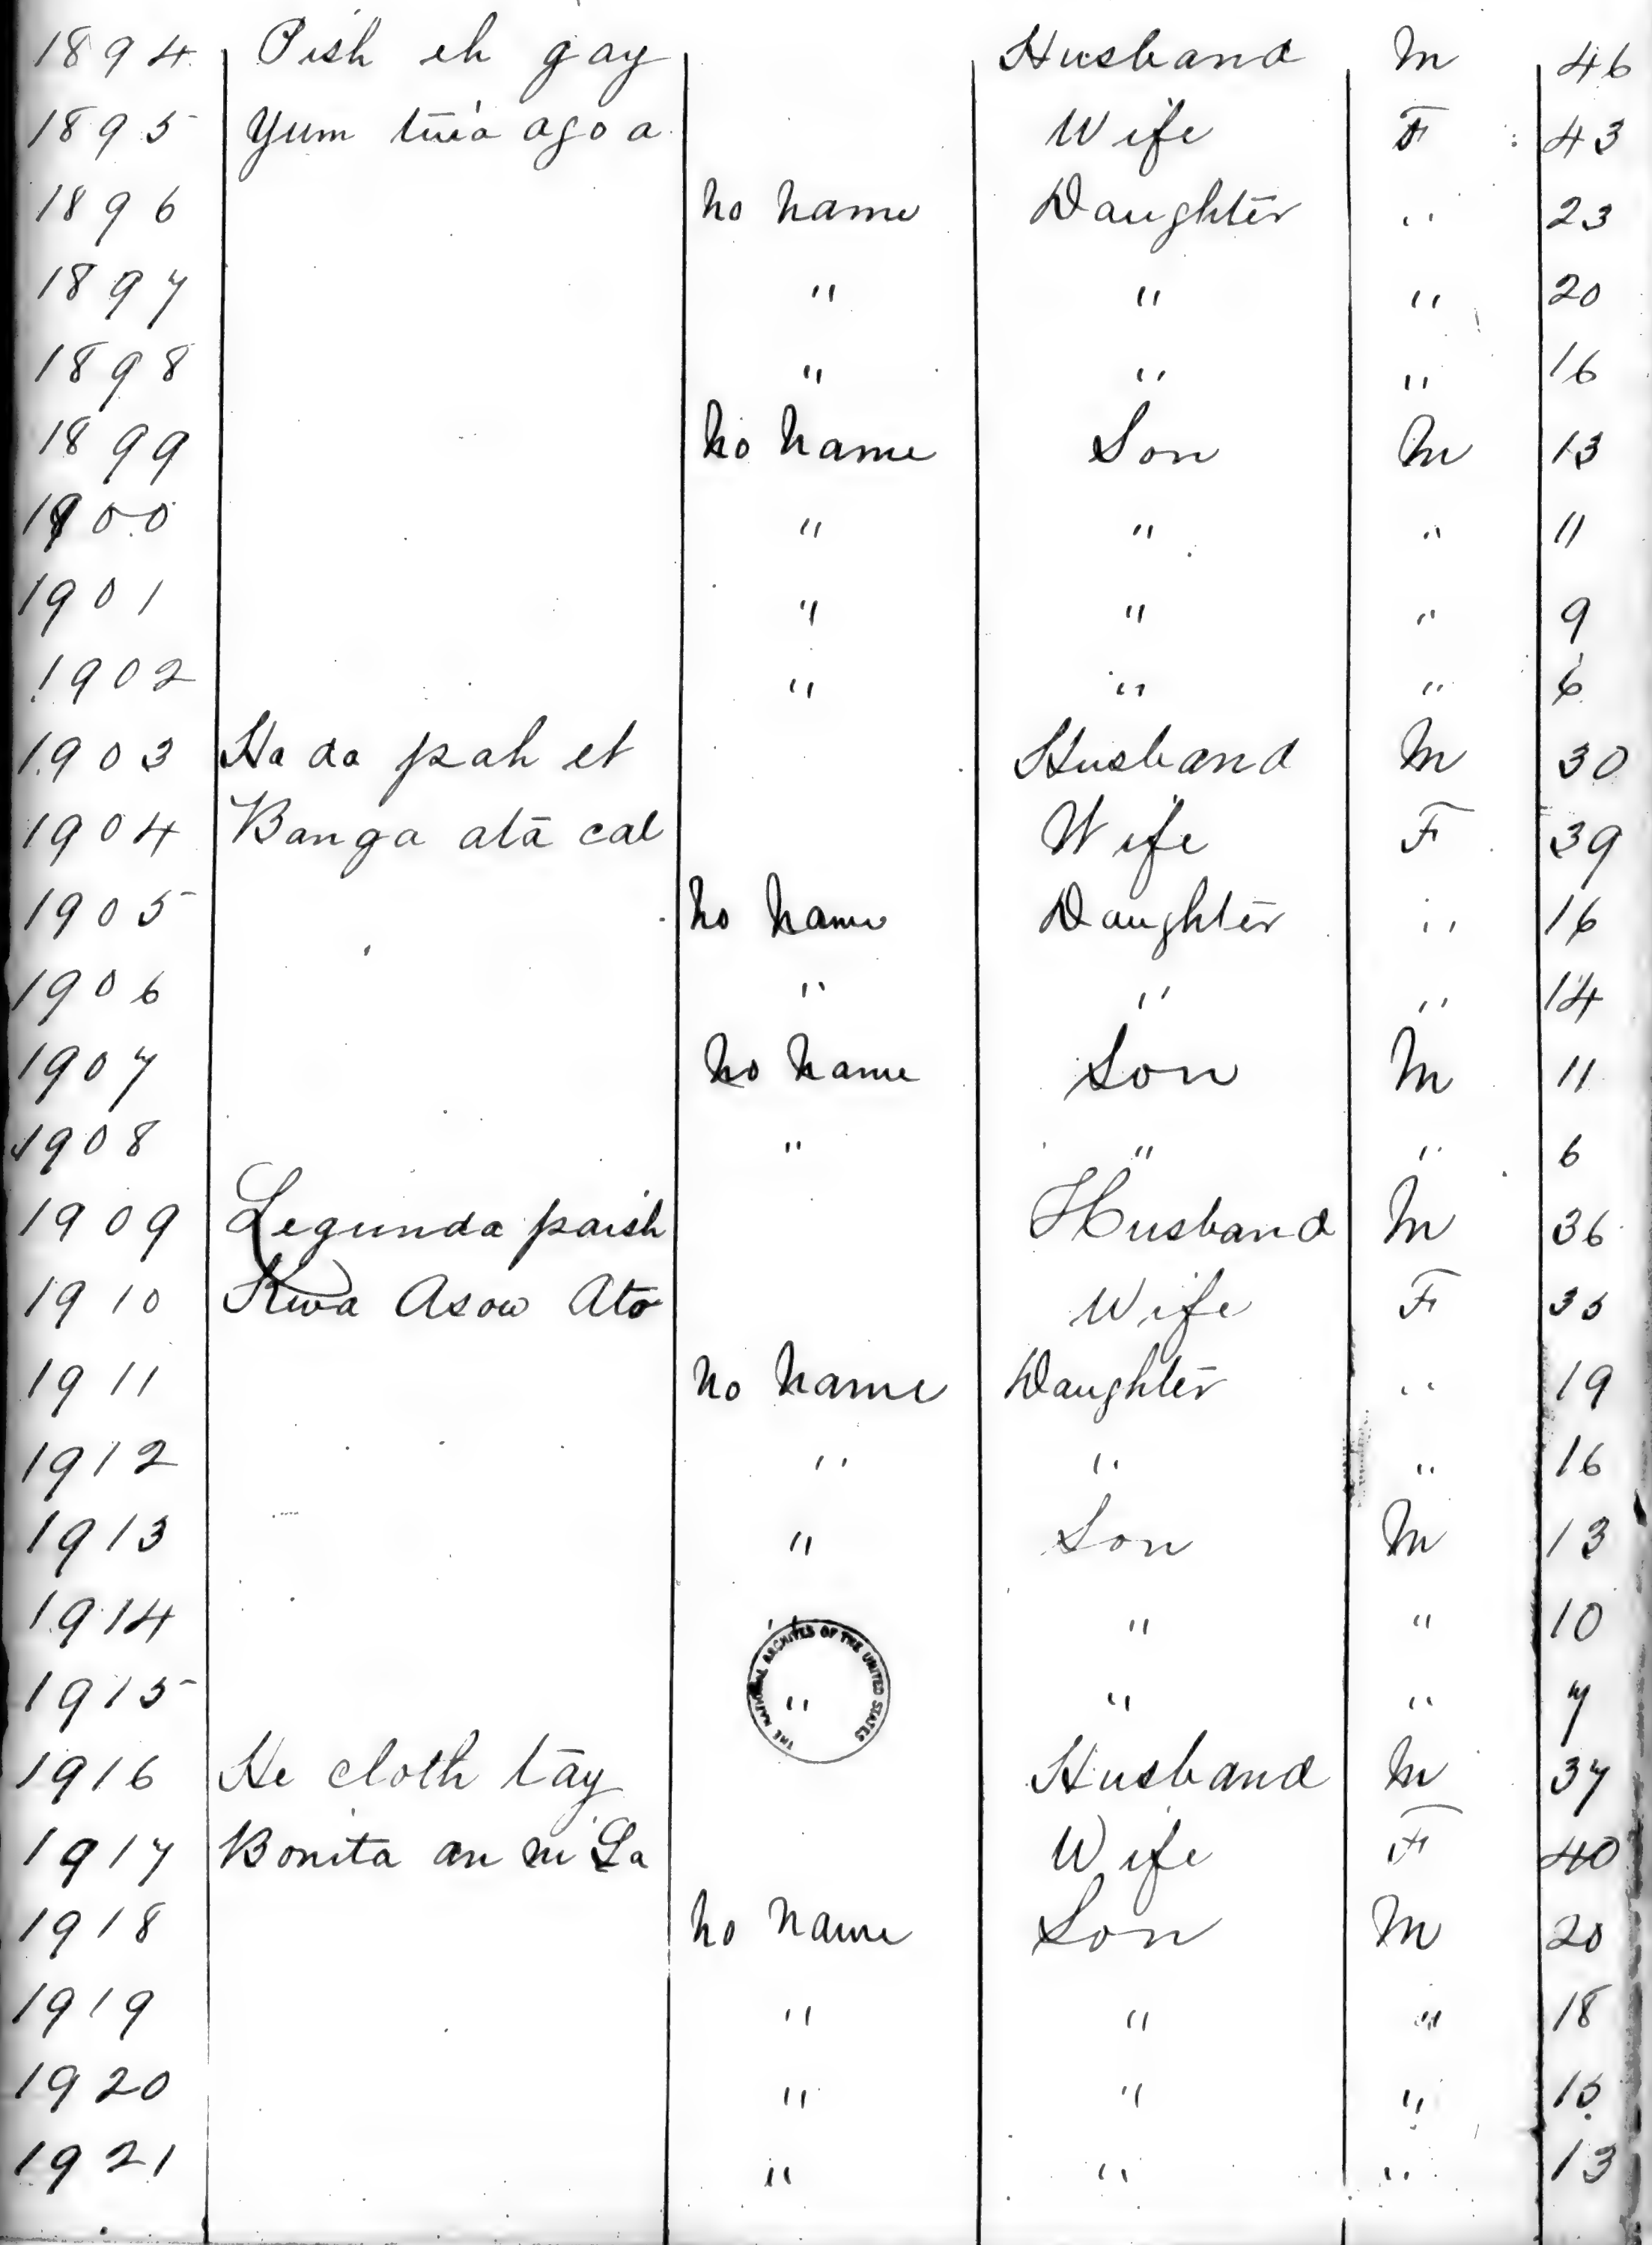 1894 Pish eh gay Husband M 46
1895 Yum tuia agoa Wife F 43
1896 No Name Daughter " 23
1897 " " " 20
1898 " " " 16
1899 No Name Son M 13
1900 " " " 11
1901 " " " 9
1902 " " " 6
1903 Ha da pah et Husband M 30
1904 Banga atā cal Wife F 39
1905 No Name Daughter " 16
1906 " " " 14
1907 No Name Son M 11
1908 " " " 6
1909 Legunda paish Husband M 36
1910 Kwa Asow Ato Wife F 35
1911 No Name Daughter " 19
1912 " " " 16
1913 " Son M 13
1914 " " " 10
THE NATIONAL ARCHIVES OF THE UNITED STATES
1915 " " " 7
1916 He cloth tāy Husband M 37
1917 Bonita an ni La Wife F 40
1918 No Name Son M 20
1919 " " " 18
1920 " " " 15
1921 " " " 13